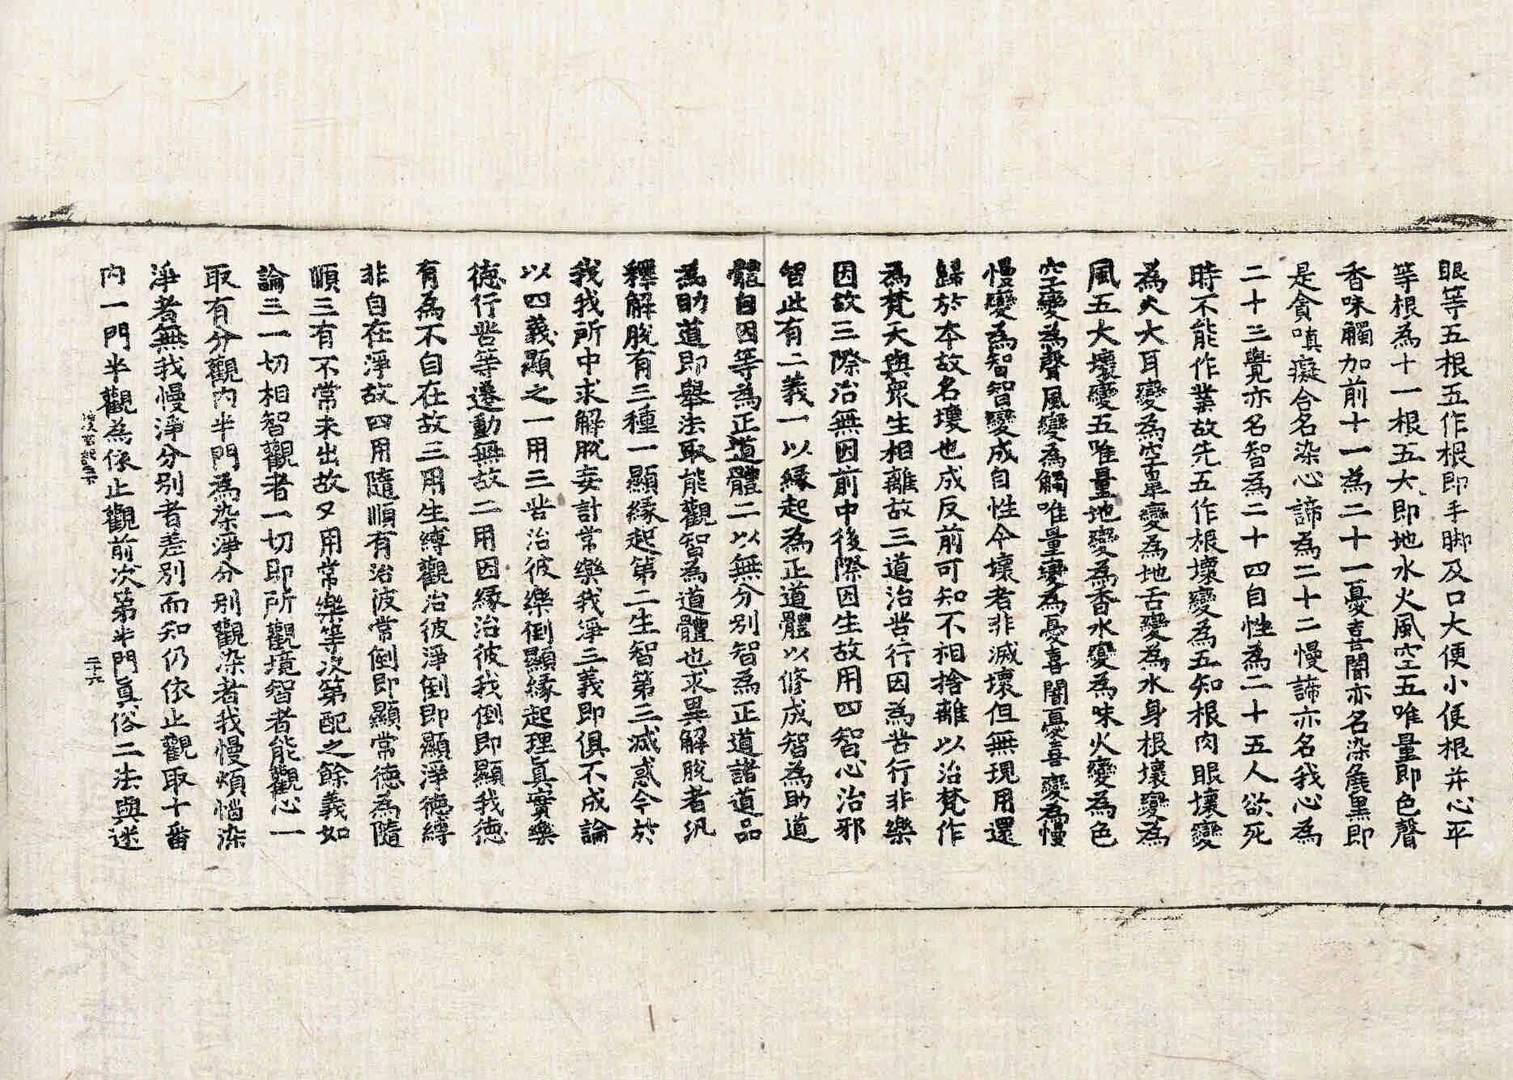 眼等五根五作根即手脚及口大便小便根并心平
等根為十一根五大即地水火風空五唯量即色聲
香味觸加前十一為二十一憂喜闇亦名染麁黑即
是貪嗔癡合名染心諦為二十二慢諦亦名我心為
二十三覺亦名智為二十四自性為二十五人欲死
時不能作業故先五作根壞變為五知根肉眼壞變
為火大耳變為空鼻變為地舌變為水身根壞變為
風五大壞變五唯量地變為香水變為味火變為色
空變為聲風變為觸唯量變為憂喜闇憂喜變為慢
慢變為智智變成自性今壞者非滅壞但無現用還
歸於本故名壞也成反前可知不相捨離以治梵作
為梵天與衆生相離故三道治苦行因為苦行非樂
因故三際治無因前中後際因生故用四智心治邪
智此有二義一以緣起為正道體以修成智為助道
體自因等為正道體二以無分別智為正道諸道品
為助道即舉法取能觀智為道體也求異解脫者汎
釋解脫有三種一顯緣起第二生智第三滅惑今於
我我所中求解脫妄計常樂我淨三義即俱不成論
以四義顯之一用三苦治彼樂倒顯緣起理真實樂
德行苦等遷動無故二用因緣治彼我倒即顯我德
有為不自在故三用生縛觀治彼淨倒即顯淨德縛
非自在淨故四用隨順有治彼常倒即顯常德為隨
順三有不常未出故又用常樂等次第配之餘義如
論三一切相智觀者一切即所觀境智者能觀心一
取有分觀內半門為染淨分別觀染者我慢煩惱染
淨者無我慢淨分別者差別而知仍依止觀取十番
內一門半觀為依止觀前次第半門真俗二法與迷